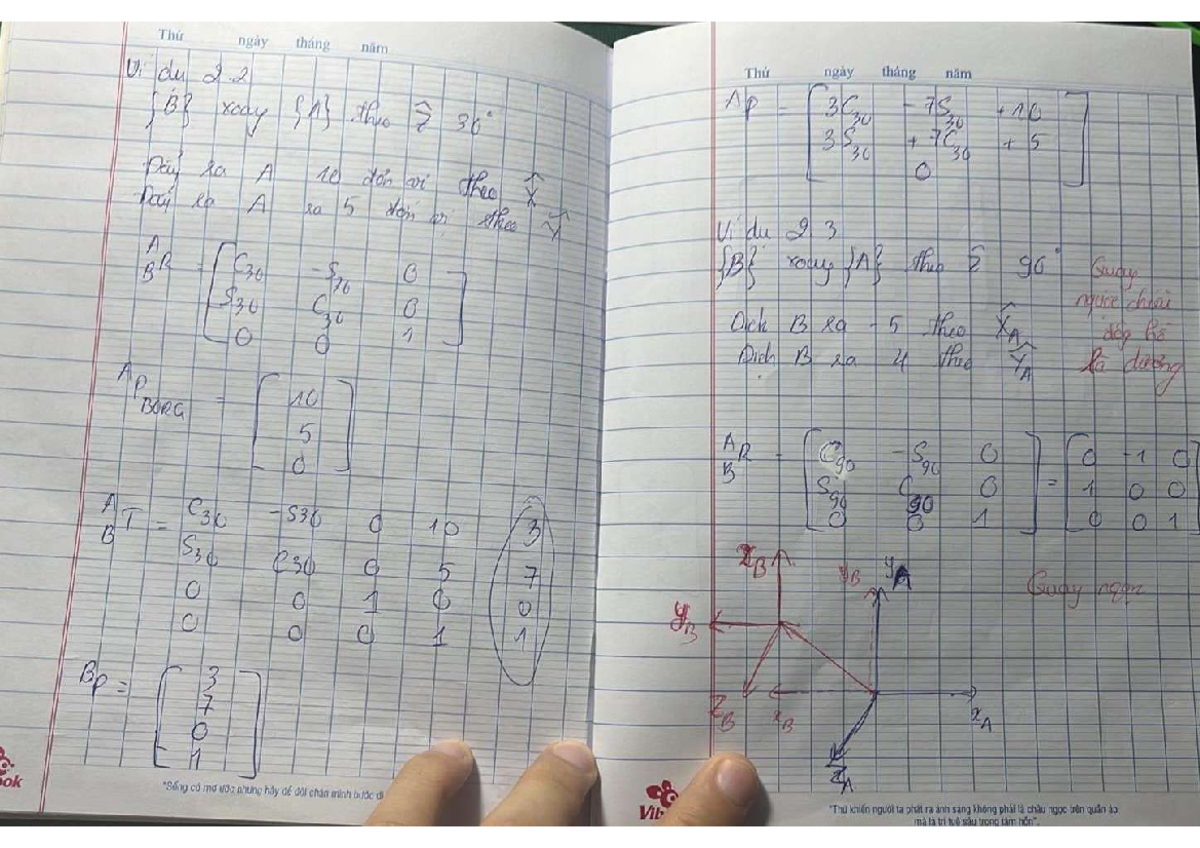 Thứ ngày tháng năm
Ví dụ 2.2
{B} xoay {A} theo Ẑ 30°
Dãy ra A 10 đơn vị theo X̂
Dãy ra A ra 5 đơn vị theo Ŷ
A B R = [ C30 -S30 0
S30 C30 0
0 0 1 ]
A P BORG = [ 10
5
0 ]
A B T = C30 -S30 0 10 3
S30 C30 0 5 7
0 0 1 0 0
0 0 0 1 1
B P = [ 3
7
0
1 ]
"Sống có mơ ước nhưng hãy để đôi chân mình bước đi
Thứ ngày tháng năm
A P = [ 3C30 - 7S30 + 10
3S30 + 7C30 + 5
0 ]
Ví dụ 2 3
{B} xoay {A} theo Ẑ 90°
Quay
ngược chiều
đồng hồ
là dương
Dịch B ra -5 theo X̂A
Dịch B ra 4 theo ŶA
A B R = [ C90 -S90 0
S90 C90 0
0 0 1 ] = [ 0 -1 0
1 0 0
0 0 1
XB
yB
yA
yB
ZB
xB
xA
ZA
Quay ngọn
"Thứ khiến người ta phát ra ánh sáng không phải là châu ngọc trên quần áo
mà là trí tuệ sâu trong tâm hồn".